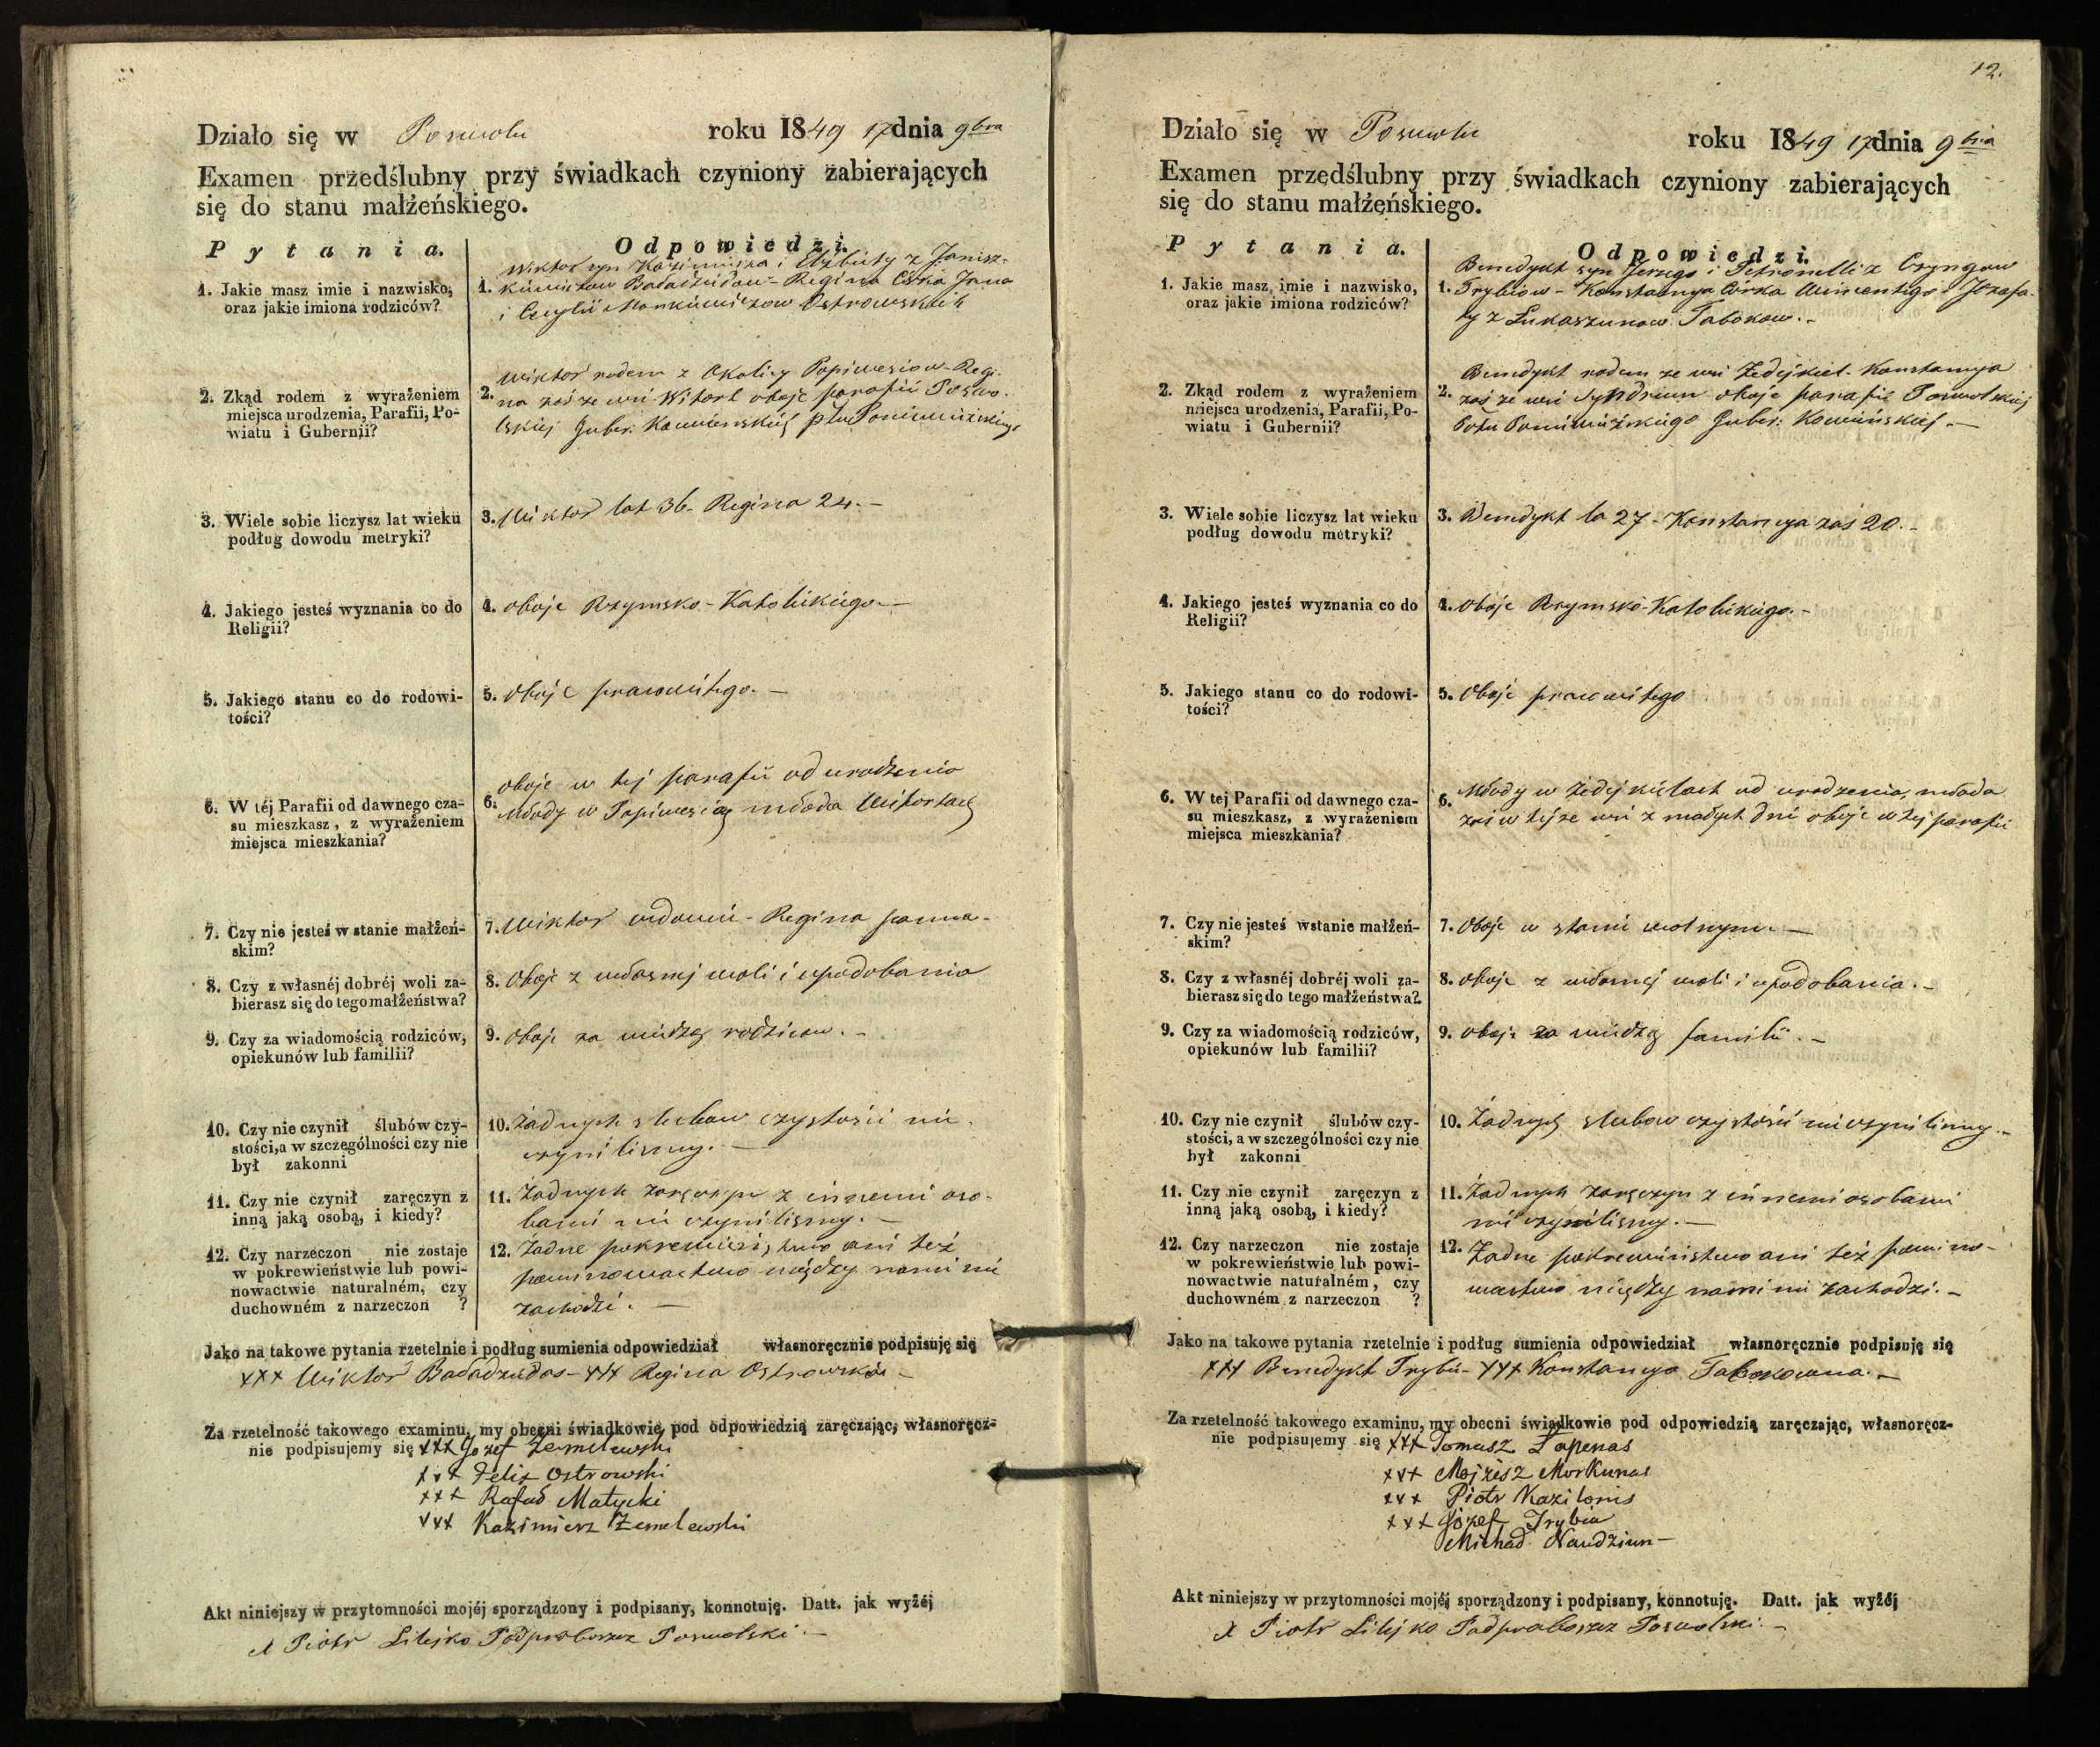 Działo się w Poswolu roku 1849 17 dnia 9bra
Examen przedślubny przy świadkach czyniony zabierających
się do stanu małżeńskiego.
Pytania.
Odpowiedzi.
1. Jakie masz imie i nazwisko,
oraz jakie imiona rodziców?
Wiktor syn Kazimierza i Elżbiety z Janisz-
1. Baładźudow - Regina Córka Jana
i Cecylii Ostrowskich
2. Zkąd rodem z wyrażeniem
miejsca urodzenia, Parafii, Po-
wiatu i Gubernii?
Wiktor rodem z Okolicy Popiweziow - Regi-
2. na zaś ze wsi Witort oboje parafii Poswo-
lskiej Guber. Kowieńskiej pttu Poniewiezkiego
3. Wiele sobie liczysz lat wieku
podług dowodu metryki?
3. Wiktor lat 36 - Regina 24. -
4. Jakiego jesteś wyznania co do
Religii?
4. Oboje Rzymsko-Katolickiego -
5. Jakiego stanu co do rodowi-
tości?
5. Oboje prawowitego. -
6. W téj Parafii od dawnego cza-
su mieszkasz, z wyrażeniem
miejsca mieszkania?
oboje w tej parafii od urodzenia
6. Młody w młoda Witortach
7. Czy nie jesteś w stanie małżeń-
skim?
7. Wiktor wdowiec - Regina panna -
8. Czy z własnéj dobréj woli za-
bierasz się do tego małżeństwa?
8. Oboje z własnej woli i upodobania
9. Czy za wiadomością rodziców,
opiekunów lub familii?
9. Oboje za wiedzą rodzicow. -
10. Czy nie czynił ślubów czy-
stości, a w szczególności czy nie
był zakonni
10. Żadnych slubow czystości nie
czynilismy. -
11. Czy nie czynił zaręczyn z
inną jaką osobą, i kiedy?
11. Żadnych zaręczyn z innemi oso-
bami nie czynilismy. -
12. Czy narzeczon nie zostaje
w pokrewieństwie lub powi-
nowactwie naturalném, czy
duchowném z narzeczon ?
12. Żadne pokrewieństwo ani też
powinowactwo między nami nie
zachodzi. -
Jako na takowe pytania rzetelnie i podług sumienia odpowiedział własnoręcznie podpisuję się
+++ Wiktor Baładzudas - +++ Regina Ostrowska -
Za rzetelność takowego examinu, my obecni świadkowie, pod odpowiedzią zaręczając, własnoręcz-
nie podpisujemy się +++ Jozef Zemelewski
+++ Felix Ostrowski
+++ Rafał Matycki
+++ Kazimierz Zemelewski
Akt niniejszy w przytomności mojéj sporządzony i podpisany, konnotuję. Datt. jak wyżéj
X Piotr Lilejko Podproboszcz Poswolski. -
12.
Działo się w Poswolu roku 1849 17 dnia 9bra
Examen przedślubny przy świadkach czyniony zabierających
się do stanu małżeńskiego.
Pytania.
Odpowiedzi.
1. Jakie masz imie i nazwisko,
oraz jakie imiona rodziców?
Benedykt syn Jerzego i Petronelli z
1. Trybiow - Konstancya Córka Wincentego i Jozefa-
ty z Łukaszunow Tabokow. -
2. Zkąd rodem z wyrażeniem
miejsca urodzenia, Parafii, Po-
wiatu i Gubernii?
Benedykt rodem ze wsi Żedejkiel - Konstancya
2. zaś ze wsi oboje parafii Poswolskiej
Pottu Poniewiezkiego Guber: Kowieńskiej. -
3. Wiele sobie liczysz lat wieku
podług dowodu metryki?
3. Benedykt la 27 - Konstancya zas 20. -
4. Jakiego jesteś wyznania co do
Religii?
4. Oboje Rzymsko-Katolickiego. -
5. Jakiego stanu co do rodowi-
tości?
5. Oboje prawowitego
6. W tej Parafii od dawnego cza-
su mieszkasz, z wyrażeniem
miejsca mieszkania?
Młody w Żedejkielach od urodzenia, młoda
6. zaś w tejże wsi z małych dni oboje w tej parafii
7. Czy nie jesteś wstanie małżeń-
skim?
7. Oboje w stanie wolnym. -
8. Czy z własnéj dobréj woli za-
bierasz się do tego małżeństwa?
8. Oboje z własnej woli i upodobania. -
9. Czy za wiadomością rodziców,
opiekunów lub familii?
9. Oboje za wiedzą familii. -
10. Czy nie czynił ślubów czy-
stości, a w szczególności czy nie
był zakonni
10. Żadnych slubow czystości nie czynilismy. -
11. Czy nie czynił zaręczyn z
inną jaką osobą, i kiedy?
11. Żadnych zaręczyn z innemi osobami
nie czynilismy. -
12. Czy narzeczon nie zostaje
w pokrewieństwie lub powi-
nowactwie naturalném, czy
duchowném z narzeczon ?
12. Żadne pokrewieństwo ani też powino-
wactwo między nami nie zachodzi. -
Jako na takowe pytania rzetelnie i podług sumienia odpowiedział własnoręcznie podpisuję się
+++ Benedykt Trybi - +++ Konstancya Tabokowna. -
Za rzetelność takowego examinu, my obecni świadkowie pod odpowiedzią zaręczając, własnoręcz-
nie podpisujemy się +++ Tomasz Łapenas
+++ Mojżesz Morkunas
+++ Piotr Kazilonis
+++ Jozef Trybia
Michał Naudziun -
Akt niniejszy w przytomności mojéj sporządzony i podpisany, konnotuję. Datt. jak wyżéj
X Piotr Lilejko Podproboszcz Poswolski. -